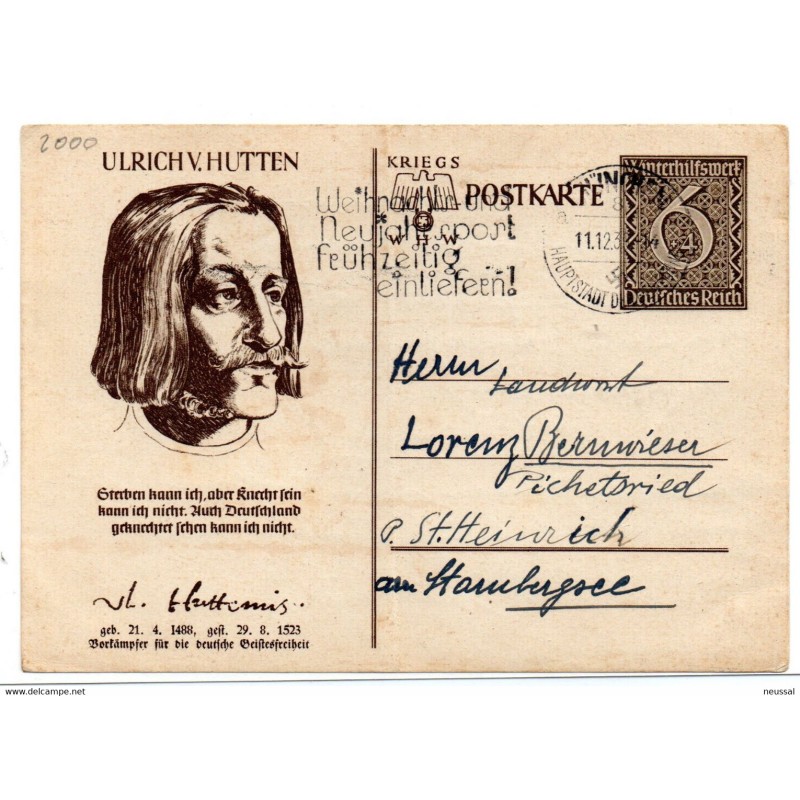 2000
ULRICH V. HUTTEN
Sterben kann ich, aber Knecht sein
kann ich nicht. Auch Deutschland
geknechtet sehen kann ich nicht.
geb. 21. 4. 1488, gest. 29. 8. 1523
Vorkämpfer für die deutsche Geistesfreiheit
KRIEGS
WHW
POSTKARTE
Weihnachts- und
Neujahrspost
frühzeitig
einliefern!
11.12.3
HAUPTSTADT D
Winterhilfswerk
6+4
Deutsches Reich
Herrn
Landwirt
Lorenz Bernwieser
Pichetsried
P. St. Heinrich
am Starnbergsee
www.delcampe.net
neussal